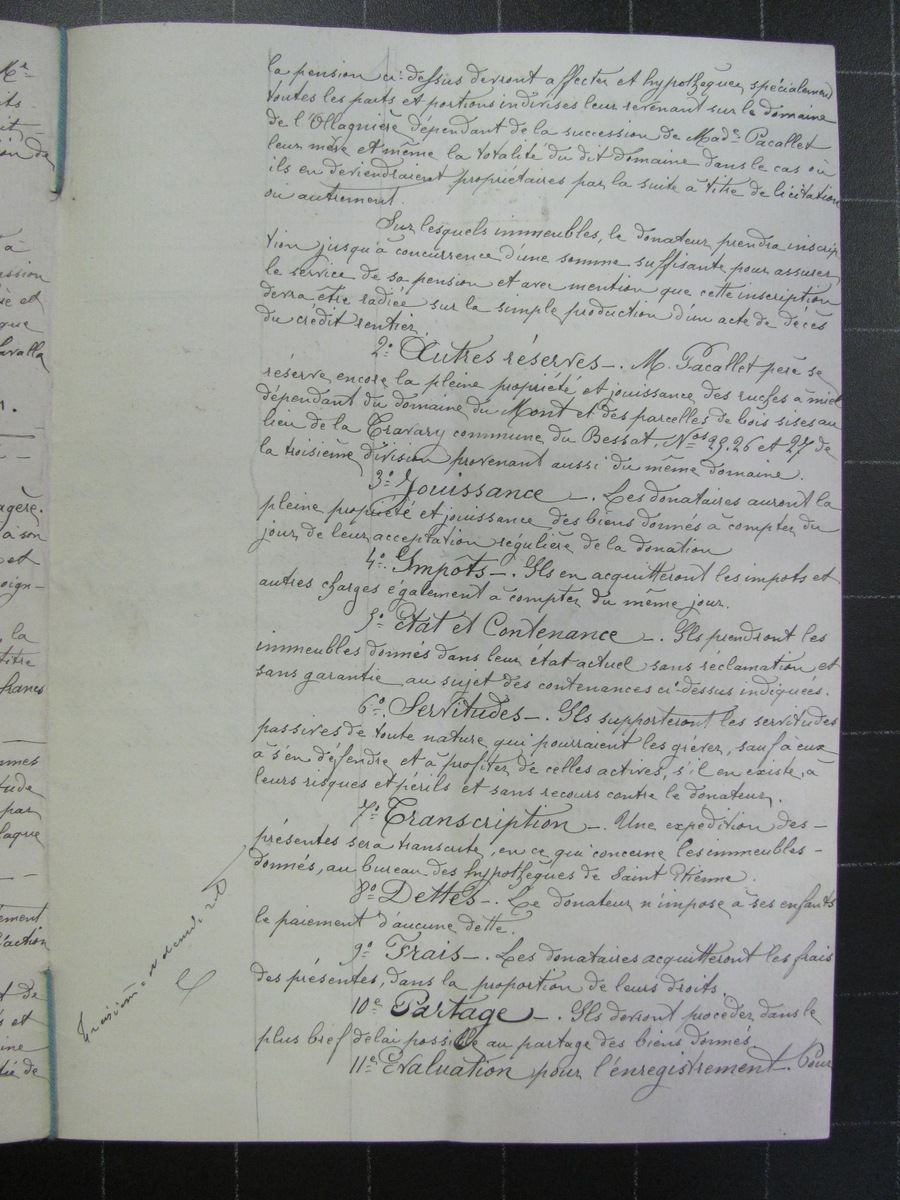 la pension ci-dessus devront affecter et hypothéquer spécialement
toutes les parts et portions indivises leur revenant sur le domaine
de l'Ollagnière dépendant de la succession de Made Pacallet
leur mère et même la totalité du dit domaine dans le cas où
ils en deviendraient propriétaires par la suite à titre de licitation
ou autrement.
Sur lesquels immeubles, le donateur prendra inscrip
tion jusqu'à concurrence d'une somme suffisante pour assurer
le service de sa pension et avec mention que cette inscription
devra être radiée sur la simple production d'un acte de décès
du crédit rentier.
2° Autres réserves -. M. Pacallet père se
réserve encore la pleine propriété et jouissance des ruches à miel
dépendant du domaine du Mont et des parcelles de bois sises au
lieu de la Travary commune du Bessat, Nos 25. 26 et 27 de
la troisième division provenant aussi du même domaine.
3° Jouissance -. Les donataires auront la
pleine propriété et jouissance des biens donnés à compter du
jour de leur acceptation régulière de la donation
4° Impôts -. Ils en acquitteront les impots et
autres charges également à compter du même jour.
5° Etat et Contenance -. Ils prendront les
immeubles donnés dans leur état actuel sans réclamation et
sans garantie au sujet des contenances ci-dessus indiquées.
6° Servitudes -. Ils supporteront les servitudes
passives de toute nature qui pourraient les gréver, sauf à eux
à s'en défendre et à profiter de celles actives, s'il en existe, à
leurs risques et périls et sans recours contre le donateur.
7° Transcription -. Une expédition des -
présentes sera transcrite, en ce qui concerne les immeubles -
donnés, au bureau des hypothèques de Saint Etienne.
8° Dettes -. Le donateur n'impose à ses enfants
le paiement d'aucune dette.
9° Frais -. Les donataires acquitteront les frais
des présentes, dans la proportion de leurs droits.
10e Partage -. Ils devront procéder dans le
plus bref délai possible au partage des biens donnés.
11e Evaluation pour l'enregistrement. Pour